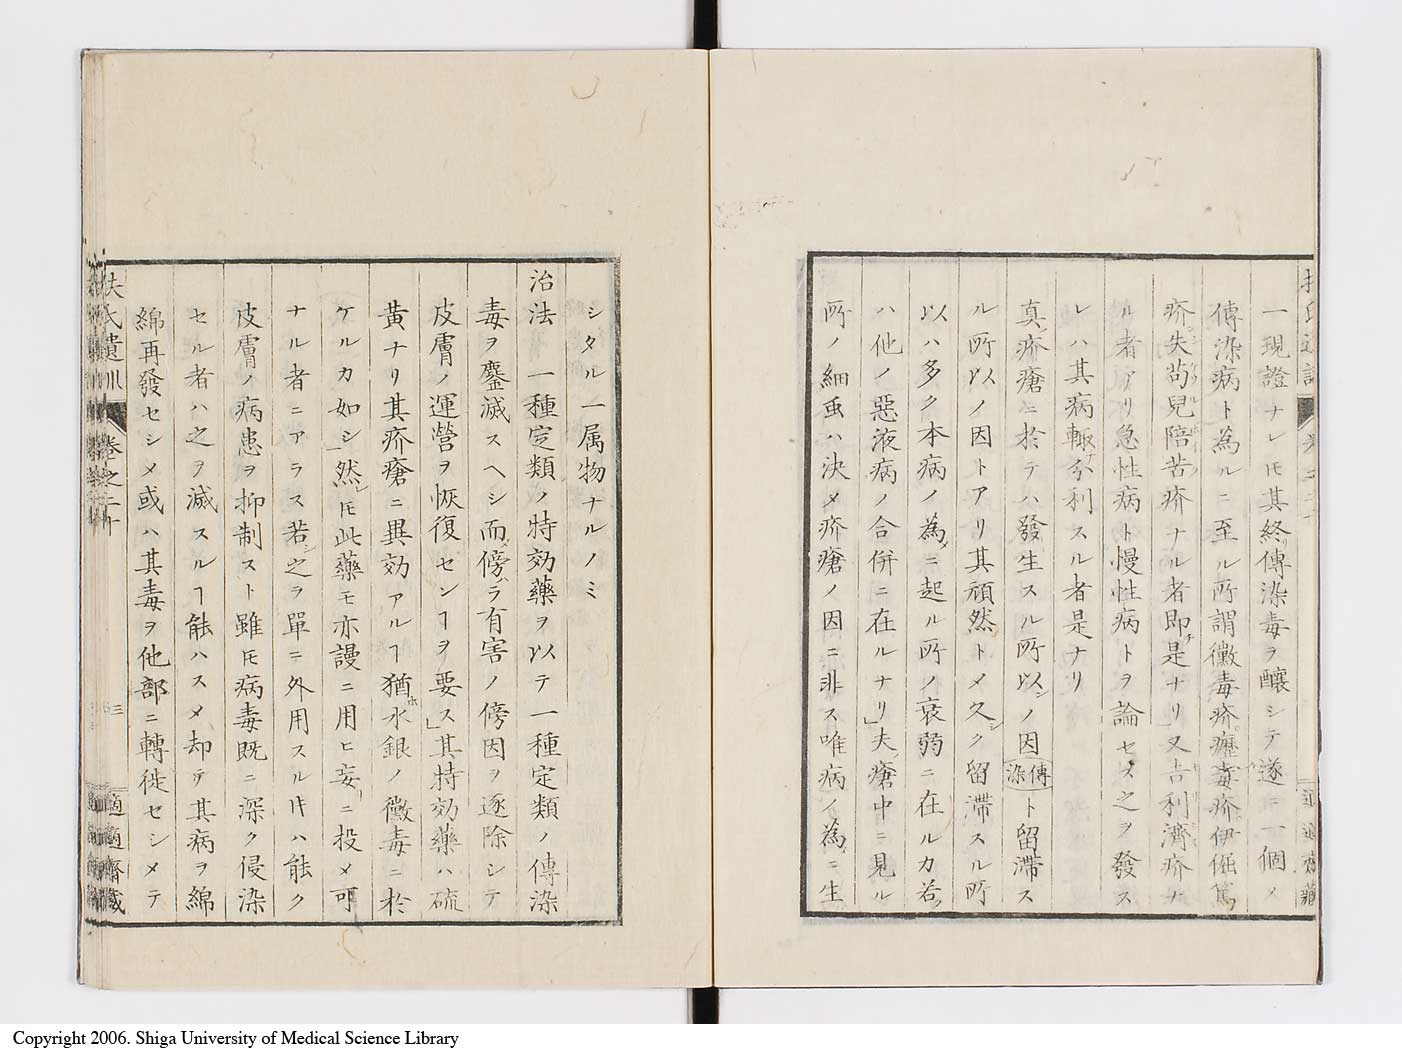 一現證ナレㇳモ其終傳染毒ヲ釀シテ遂ニ一個ノ
傳染病ト為ルニ至ル所謂黴毒疥癧毒疥伊倔篤
疥失苟兒陪苦疥ナル者即是ナリ又吉利濟疥ナ
ル者アリ急性病ト慢性病トヲ論セス之ヲ發ス
レハ其病輙分利スル者是ナリ
真疥瘡ニ於テハ發生スル所以ノ因傳染ト留滞ス
ル所以ノ因トアリ其頑然トメ久ク留滞スル所
以ハ多ク本病ノ為ニ起ル所ノ衰弱ニ在ルカ若
ハ他ノ惡液病ノ合併ニ在ルナリ」夫瘡中ニ見ル
所ノ細虫ハ決メ疥瘡ノ因ニ非ス唯病イ為ニ生
シタル一属物ナルノミ
治法 一種定類ノ特効藥ヲ以テ一種定類ノ傳染
毒ヲ鏖滅スヘシ而傍ラ有害ノ傍因ヲ逐除シテ
皮膚ノ運營ヲ恢復センヿヲ要ス」其特効藥ハ硫
黄ナリ其疥瘡ニ異効アルヿ猶水銀ノ黴毒ニ於
ケルカ如シ」然ㇳモ此藥モ亦謾ニ用ヒ妄ニ投メ可
ナル者ニアラス若之ヲ單ニ外用スルㇳキハ能ク
皮膚ノ病患ヲ抑制スト雖ㇳモ病毒既ニ深ク侵染
セル者ハ之ヲ滅スルヿ能ハスメ却テ其病ヲ綿
綿再發セシメ或ハ其毒ヲ他部ニ轉徙セシメテ
扶氏遺訓 卷之二十 三 適適齋藏